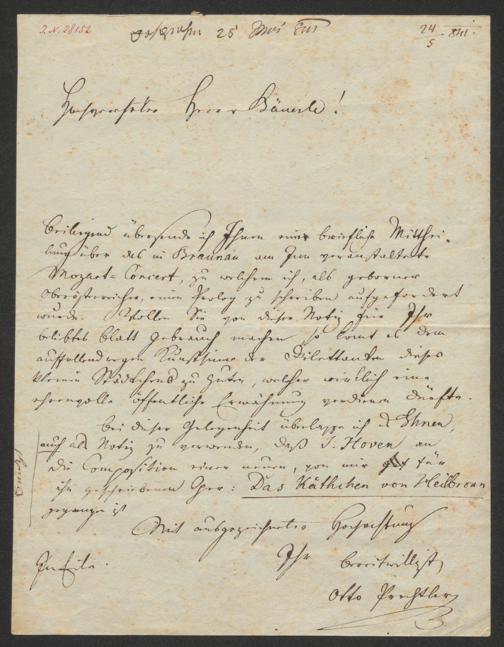 I. N. 28152
25 Mai
24/5 841.
Hochgeehrter Herr Bäuerle!
Beiliegend übersende ich Ihnen eine briefliche Mitthei-
lung über das in Braunau am Inn veranstaltete
Mozart-Concert, zu welchem ich, als geborner
Oberösterreicher, einen Prolog zu schreiben aufgefordert
wurde. Wollen Sie von dieser Notiz für Ihr
beliebtes Blatt Gebrauch machen so komt es dem
Kunstsinne der Dilettanten dieses
kleinen Städtchens zu Guten, welcher wirklich eine
ehrenvolle öffentliche Erwähnung verdienen dürfte.
Bei dieser Gelegenheit überlasse ich es Ihnen,
auch als Notiz zu verwenden, daß J. Hoven an
die Composition einer neuen, von mir für
ihn geschriebenen Oper: Das Käthchen von Heilbronn
gegangen ist
Mit ausgezeichneter Hochachtung
In Eile.
Ihr bereitwilligst
Otto Prechtler